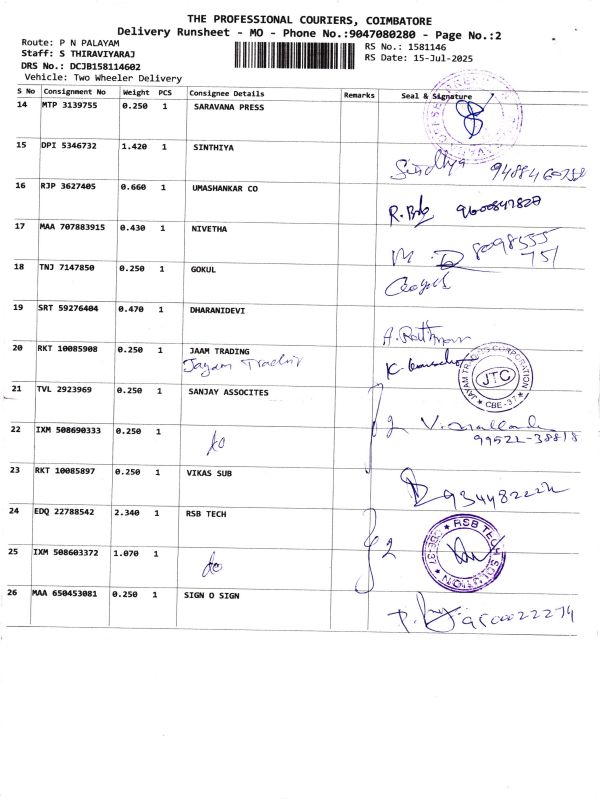 THE PROFESSIONAL COURIERS, COIMBATORE
Delivery Runsheet - MO - Phone No.:9047080280 - Page No.:2
Route: P N PALAYAM
RS No.: 1581146
Staff: S THIRAVIYARAJ
RS Date: 15-Jul-2025
DRS No.: DCJB158114602
Vehicle: Two Wheeler Delivery
S No Consignment No Weight PCS Consignee Details Remarks Seal & Signature
14 MTP 3139755 0.250 1 SARAVANA PRESS
15 DPI 5346732 1.420 1 SINTHIYA
16 RJP 3627405 0.660 1 UMASHANKAR CO
9600847820
17 MAA 707883915 0.430 1 NIVETHA
8098555
751
18 TNJ 7147850 0.250 1 GOKUL
19 SRT 59276404 0.470 1 DHARANIDEVI
20 RKT 10085908 0.250 1 JAAM TRADING
Jayam Trading
JAYAM TRADING CORPORATION
JTC
CBE-37
21 TVL 2923969 0.250 1 SANJAY ASSOCITES
2
22 IXM 508690333 0.250 1
do
99521-38818
23 RKT 10085897 0.250 1 VIKAS SUB
24 EDQ 22788542 2.340 1 RSB TECH
2
RSB TECH SOLUTION
CBE-37
25 IXM 508603372 1.070 1
do
26 MAA 650453081 0.250 1 SIGN O SIGN
9500022274